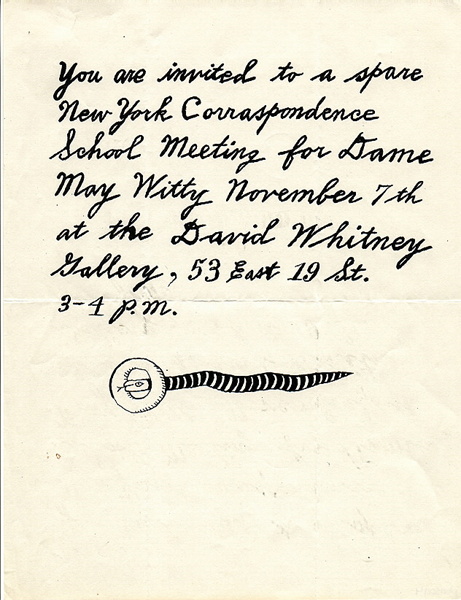 You are invited to a spare
New York Corraspondence
School Meeting for Dame
May Witty November 7th
at the David Whitney
Gallery, 53 East 19 St.
3-4 p.m.